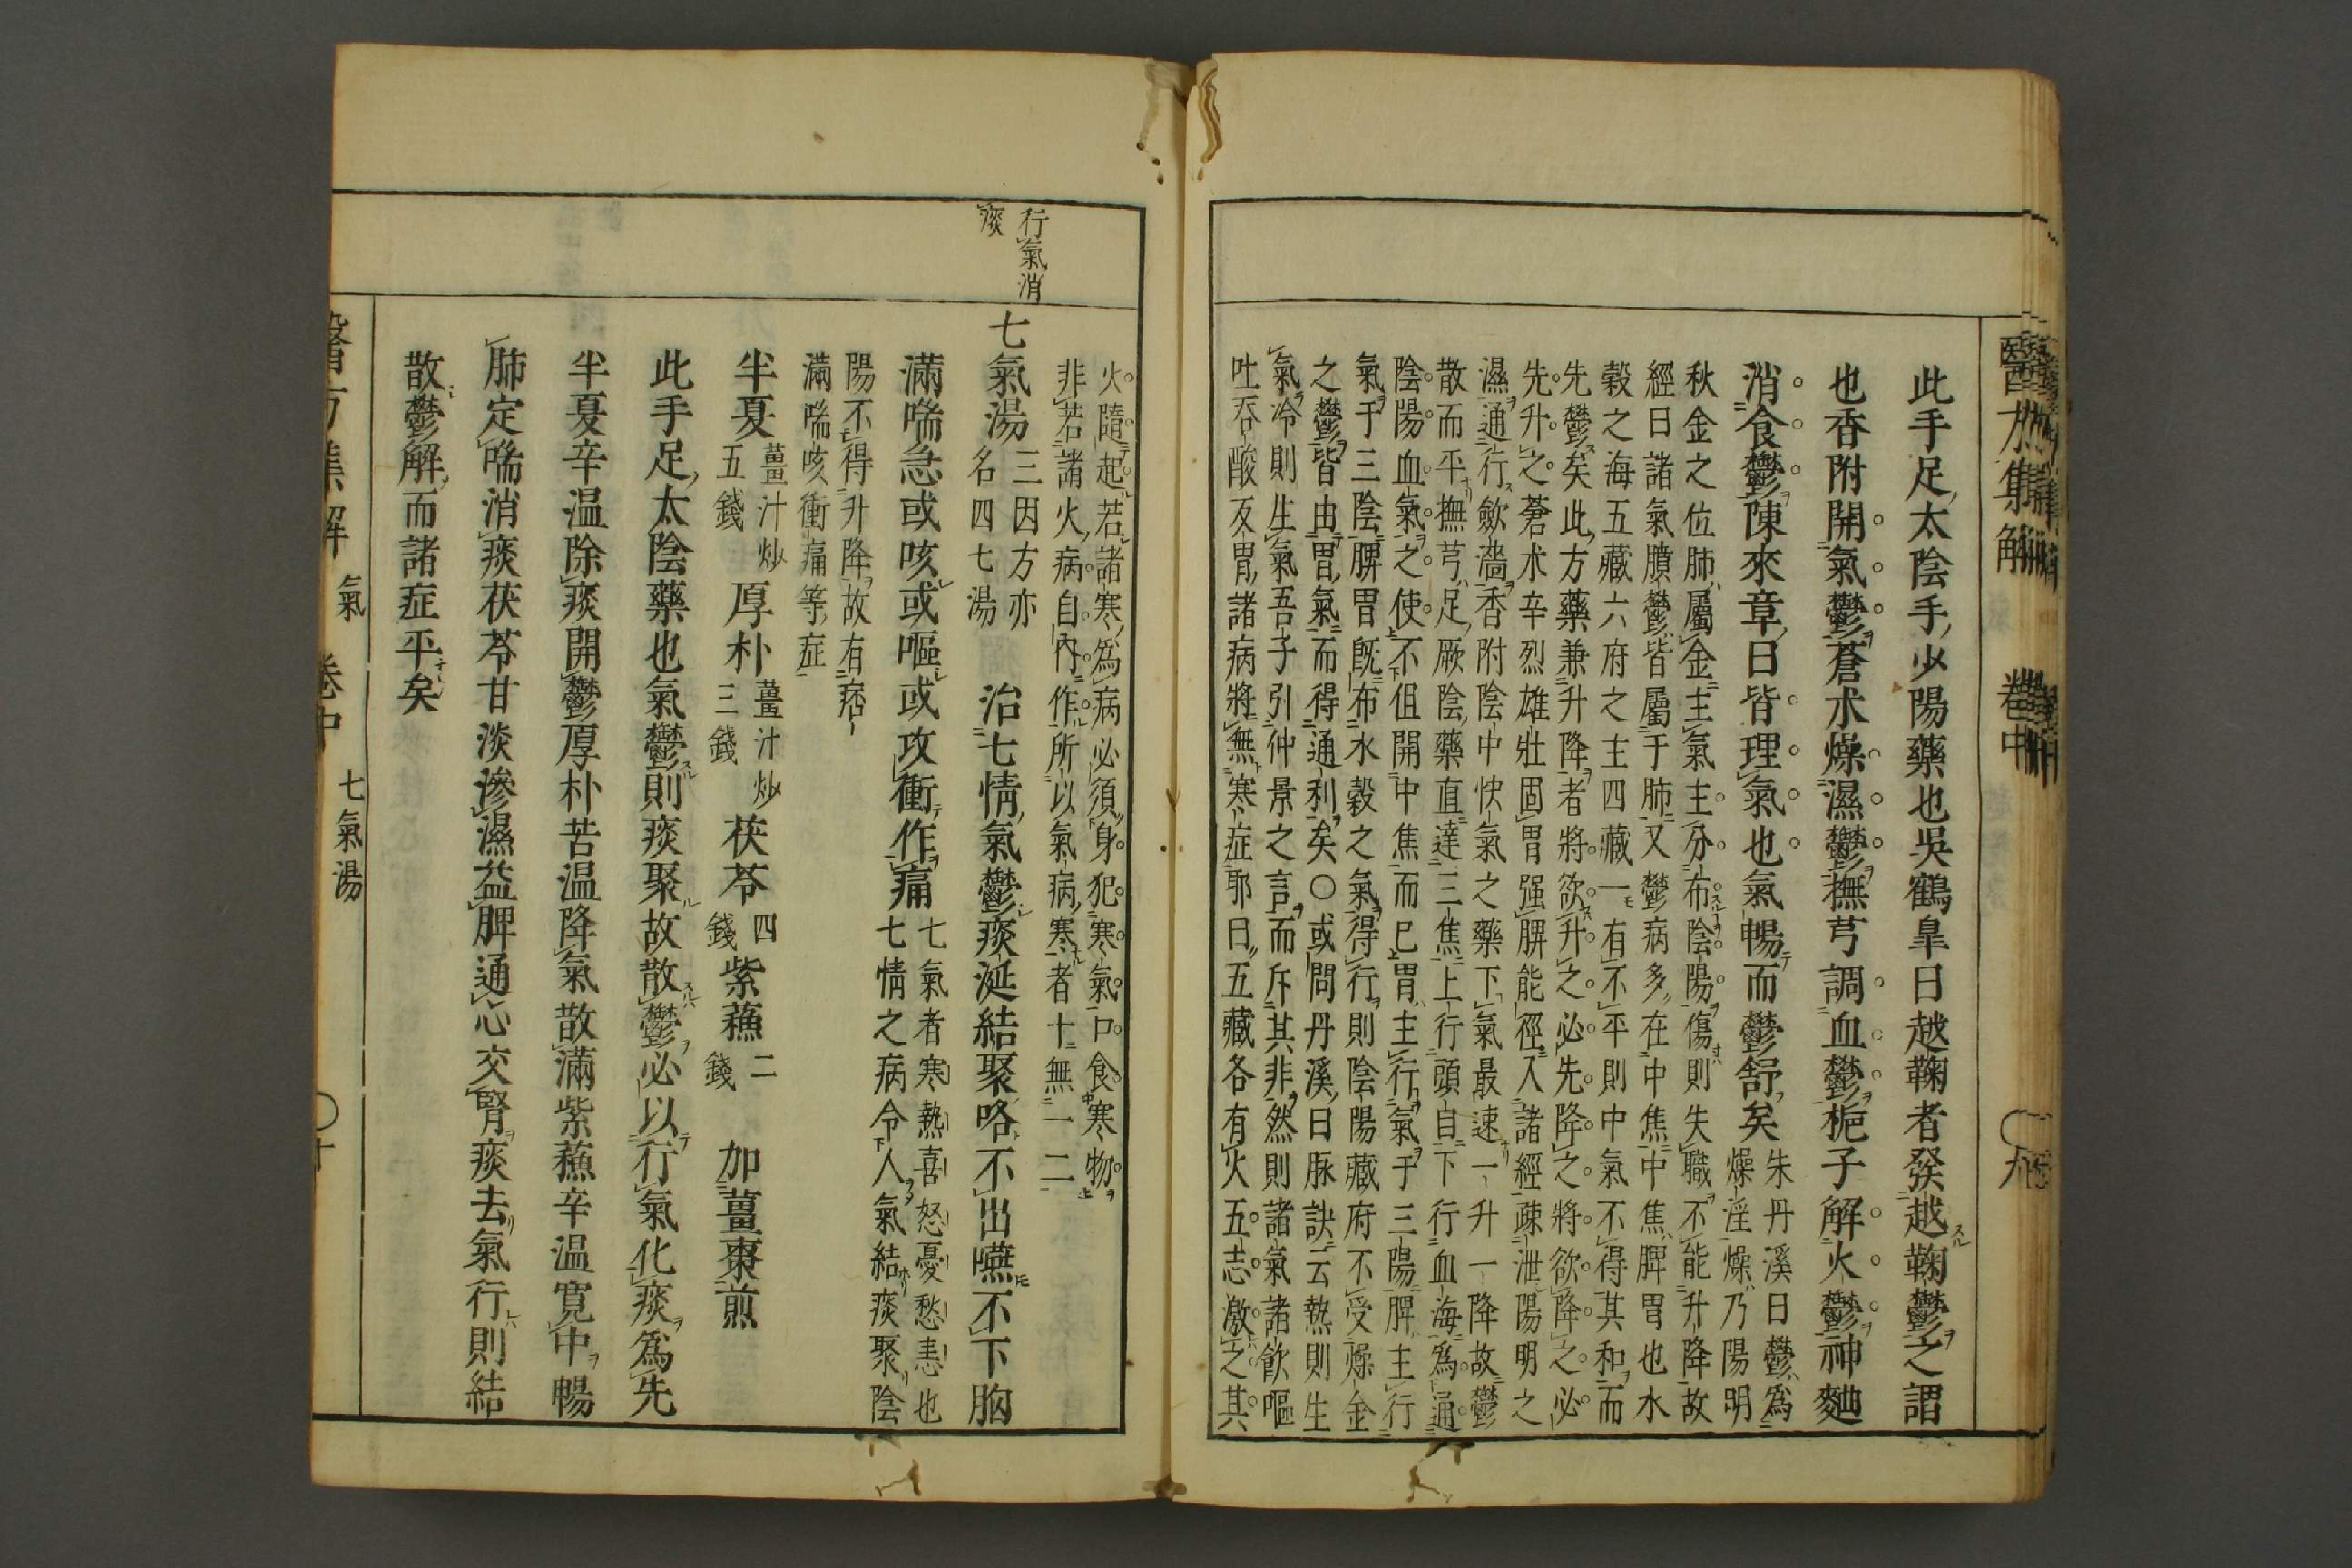 醫方集解
卷中
九
此手足太陰手少陽藥也吳鶴皐曰越鞠者發越鞠鬱之謂
也香附開氣鬱蒼朮燥濕鬱撫芎調血鬱梔子解火鬱神麯
消食鬱陳來章曰皆理氣也氣暢而鬱舒矣
朱丹溪曰鬱爲
燥淫燥乃陽明
秋金之位肺屬金主氣主分布陰陽傷則失職不能升降故
經曰諸氣膹鬱皆屬于肺又鬱病多在中焦中焦脾胃也水
穀之海五藏六府之主四藏一有不平則中氣不得其和而
先鬱矣此方藥兼升降者將欲升之必先降之將欲降之必
先升之蒼朮辛烈雄壯固胃强脾能徑入諸經疎泄陽明之
濕通行歛濇香附陰中快氣之藥下氣最速一升一降故鬱
散而平撫芎足厥陰藥直達三焦上行頭目下行血海爲通
陰陽血氣之使不但開中焦而已胃主行氣于三陽脾主行
氣于三陰脾胃既布水穀之氣得行則陰陽藏府不受燥金
之鬱皆由胃氣而得通利矣○或問丹溪曰脉訣云熱則生
氣冷則生氣吾子引仲景之言而斥其非然則諸氣諸飮嘔
吐吞酸反胃諸病將無寒症耶曰五藏各有火五志激之其
火隨起若諸寒爲病必須身犯寒氣口食寒物
非若諸火病自內作所以氣病寒者十無一二
行氣消
痰
七氣湯
三因方亦
名四七湯
治七情氣鬱痰涎結聚咯不出嚥不下胸
滿喘急或咳或嘔或攻衝作痛
七氣者寒熱喜怒憂愁恚也
七情之病令人氣結痰聚陰
陽不得升降故有痞
滿喘咳衝痛等症
半夏
薑汁炒
五錢
厚朴
薑汁炒
三錢
茯苓
四
錢
紫蘓
二
錢
加薑棗煎
此手足太陰藥也氣鬱則痰聚故散鬱必以行氣化痰爲先
半夏辛温除痰開鬱厚朴苦温降氣散滿紫蘓辛温寛中暢
肺定喘消痰茯苓甘淡滲濕益脾通心交腎痰去氣行則結
散鬱解而諸症平矣
醫方集解
氣
卷中
七氣湯
十